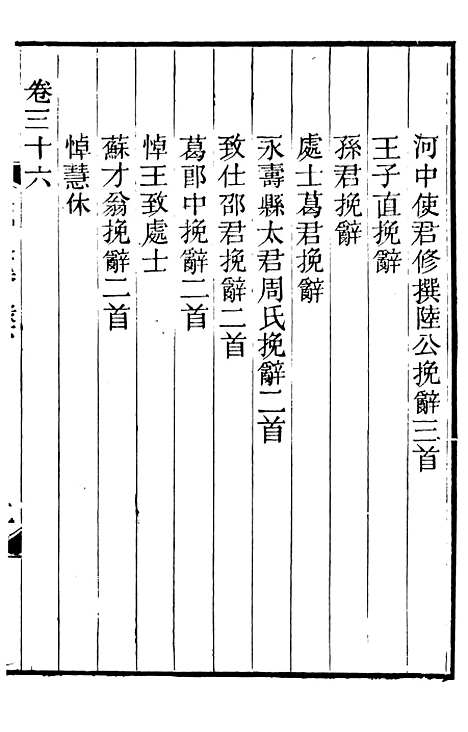 河中使君修撰陸公挽辭三首
王子直挽辭
孫君挽辭
處士葛君挽辭
永壽縣太君周氏挽辭二首
致仕邵君挽辭二首
葛郎中挽辭二首
悼王致處士
蘇才翁挽辭二首
悼慧休
卷三十六